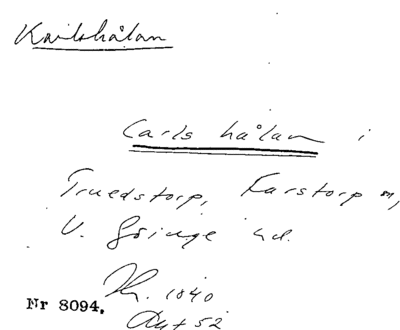 Karlshålan
Carls hålan i
Truedstorp, Farstorp sn,
V. Göinge hd.
Th. 1840
Nr 8094.
Akt 52